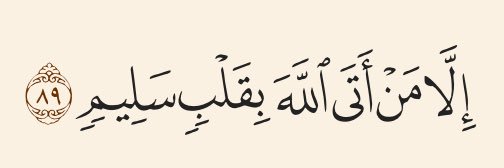 إِلَّا مَنْ أَتَى ٱللَّهَ بِقَلْبٍ سَلِيمٍ ٨٩